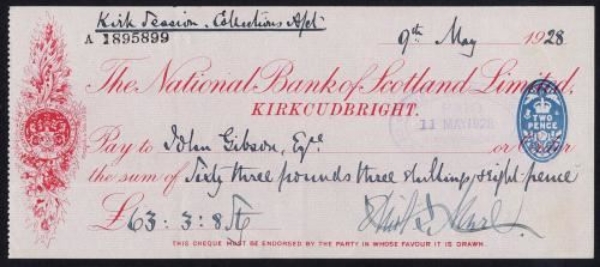 Kirk Session. Collections A/c
A 1895899
9th May 1928
The National Bank of Scotland Limited,
KIRKCUDBRIGHT.
11 MAY 1928
TWO PENCE
Pay to John Gibson, Esq. or Order
the sum of Sixty three pounds three shillings & eight pence
£63:3:8 Stg
THIS CHEQUE MUST BE ENDORSED BY THE PARTY IN WHOSE FAVOUR IT IS DRAWN.